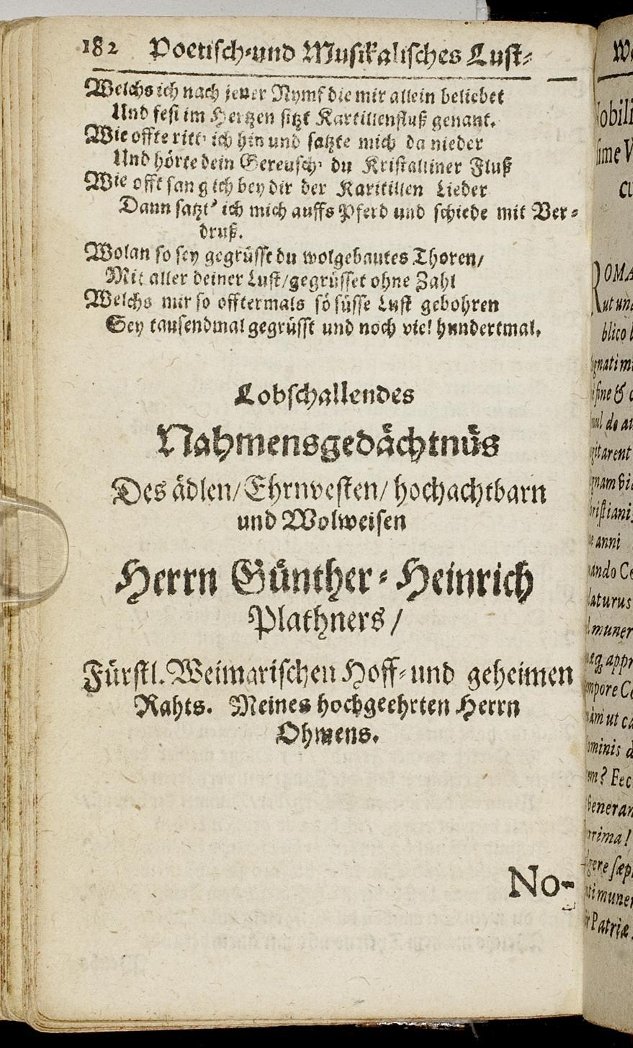 182 Poetisch-und Musikalisches Lust-
Welchs ich nach jener Nymf die mir allein beliebet
Und fest im Hertzen sitzt Karitillenfluß genant.
Wie offte ritt' ich hin und satzte mich da nieder
Und hörte dein Gereusch' du Kristalliner Fluß
Wie offt sang ich bey dir der Karitillen Lieder
Dann satzt' ich mich auffs Pferd und schiede mit Ver-
druß.
Wolan so sey gegrüsst du wolgebautes Thoren/
Mit aller deiner Lust/gegrüsset ohne Zahl
Welchs mir so offtermals so süsse Lust gebohren
Sey tausendmal gegrüsst und noch viel hundertmal.
Lobschallendes
Nahmensgedächtnüs
Des ädlen/Ehrnvesten/hochachtbarn
und Wolweisen
Herrn Günther-Heinrich
Plathners/
Fürstl. Weimarischen Hoff-und geheimen
Rahts. Meines hochgeehrten Herrn
Ohmens.
No-